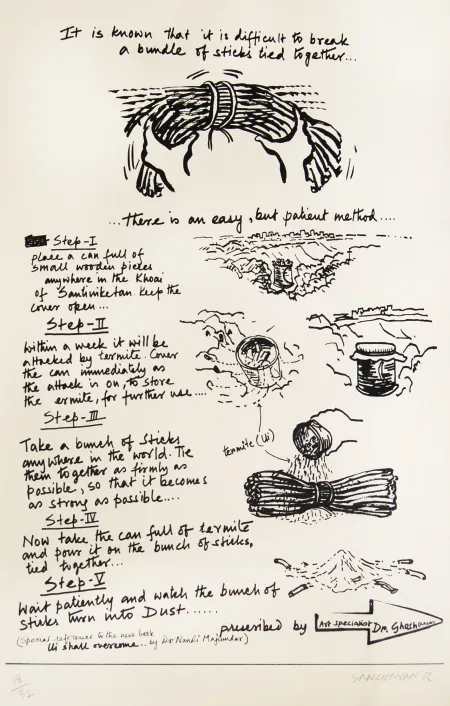 It is known that it is difficult to break
a bundle of sticks tied together...
...there is an easy, but patient method....
Step-I
place a can full of
small wooden pieces
anywhere in the Khoai
of Santiniketan. Keep the
cover open...
Step-II
Within a week it will be
attacked by termite. Cover
the can immediately as
the attack is on, to store
the ermite, for further use....
Step-III
termite (Ui)
Take a bunch of Sticks
anywhere in the world. Tie
them together as firmly as
possible, so that it becomes
as strong as possible....
Step-IV
Now take the can full of termite
and pour it on the bunch of sticks,
tied together...
Step-V
Wait patiently and watch the bunch of
sticks turn into Dust......
(Special reference to the new book
Ui shall overcome... by Dr. Nandi Majumdar)
prescribed by
Art specialist Dr.
18/32